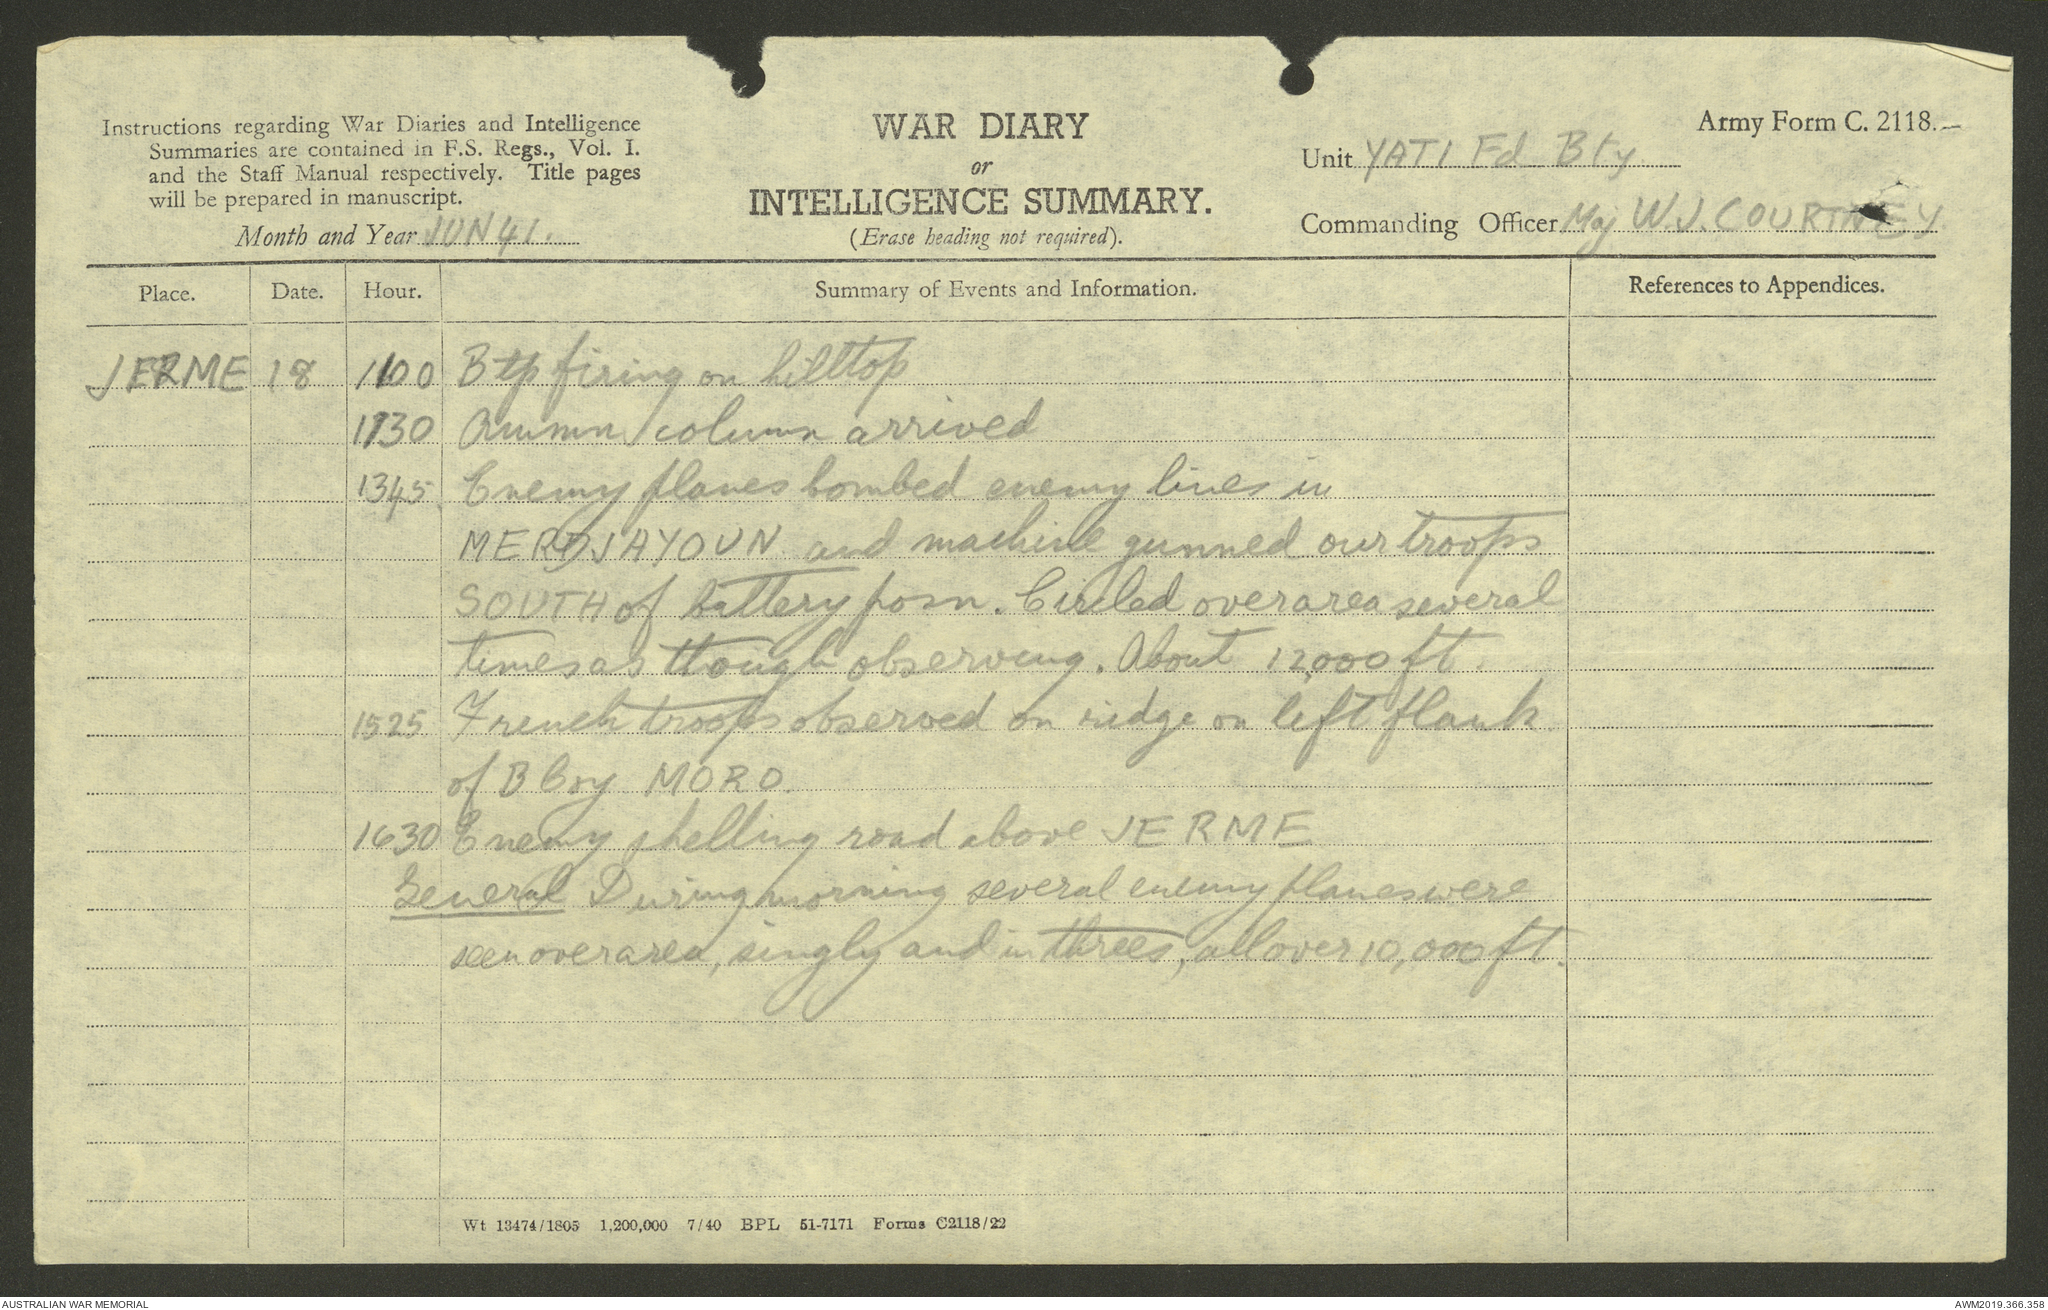 Instructions regarding War Diaries and Intelligence
Summaries are contained in F.S. Regs., Vol. I.
and the Staff Manual respectively. Title pages
will be prepared in manuscript.
Month and Year JUN 41.
WAR DIARY
or
INTELLIGENCE SUMMARY.
(Erase heading not required).
Army Form C. 2118.
Unit YATI Fd Bty
Commanding Officer Maj W.J. COURTNEY
Place. Date. Hour. Summary of Events and Information. References to Appendices.
JERME 18 1100 Btp firing on hilltop
1130 Ammn column arrived
1345 Enemy planes bombed enemy lines in
MERDJAYOUN and machine gunned our troops
SOUTH of battery posn. Circled over area several
times as though observing. About 12,000 ft.
1525 French troops observed on ridge on left flank
of B Coy MORO.
1630 Enemy shelling road above JERME
General During morning several enemy planes were
seen over area, singly and in threes, all over 10,000 ft.
Wt 13474/1805 1,200,000 7/40 BPL 51-7171 Forms C2118/22
AUSTRALIAN WAR MEMORIAL
AWM2019.366.358